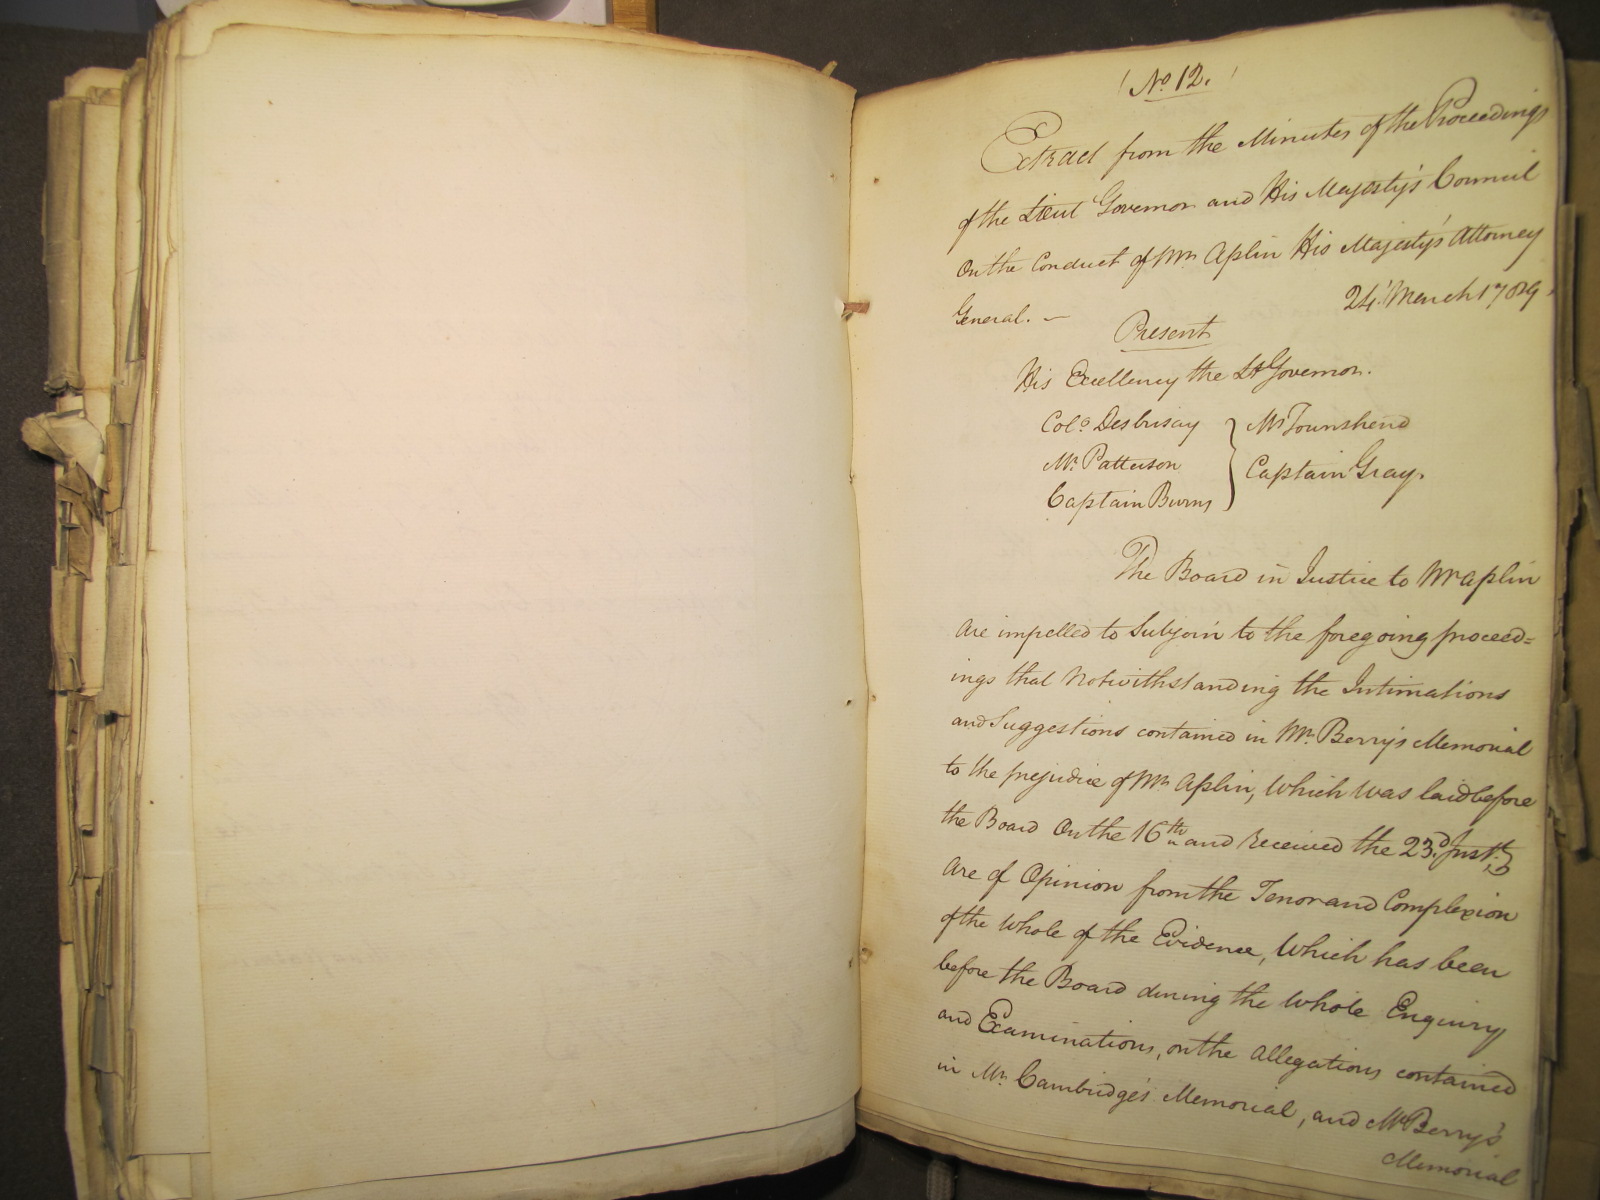 No 12.
Extract from the Minutes of the Proceedings
of the Lieut Governor and His Majesty's Council
On the Conduct of Mr Aplin His Majesty's Attorney
General. —
24. March 1789.
Present
His Excellency the Lt Governor.
Colo Desbrisay
Mr Patterson
Captain Burns
Mr Townshend
Captain Gray.
The Board in Justice to Mr Aplin
Are impelled to Subjoin to the foregoing proceed=
ings that Notwithstanding the Intimations
and Suggestions contained in Mr Berry's Memorial
to the prejudice of Mr Aplin, Which was laid before
the Board On the 16th and Received the 23d Inst,
Are of Opinion from the Tenor and Complexion
of the Whole of the Evidence, Which has been
before the Board during the Whole Enquiry
and Examinations, on the Allegations contained
in Mr Cambridge's Memorial, and Mr Berry's
Memorial